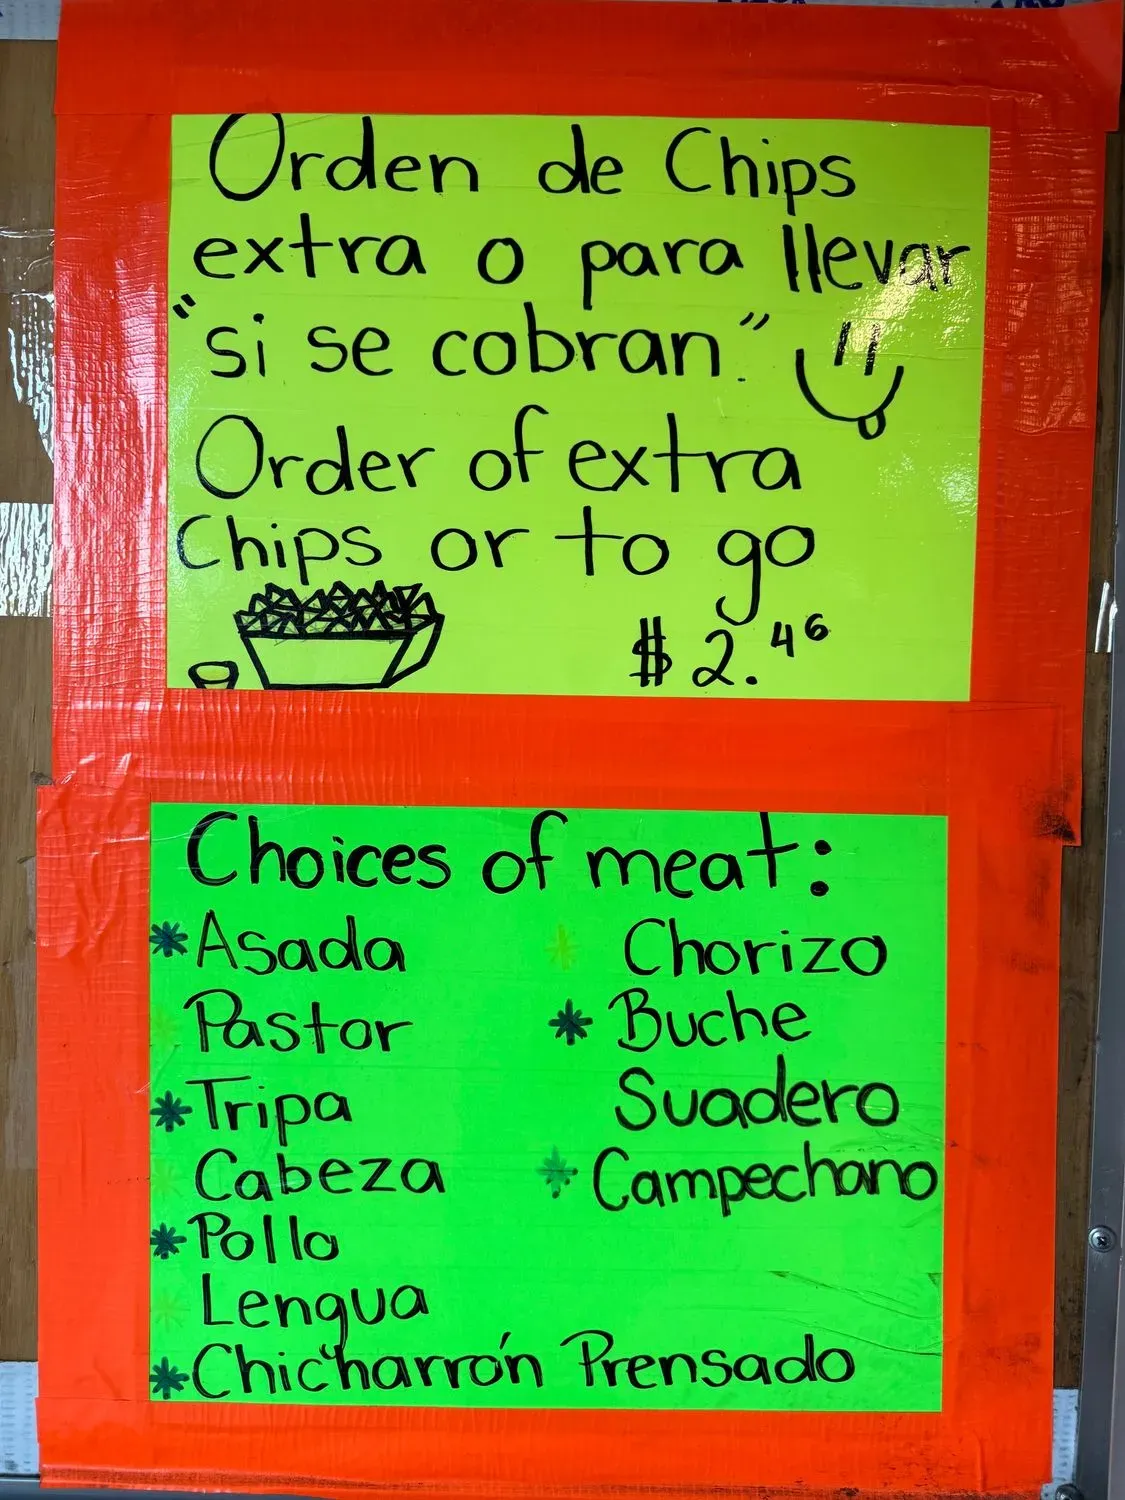 Orden de Chips
extra o para llevar
"si se cobran."
Order of extra
Chips or to go
$2.46
Choices of meat:
* Asada
* Pastor
* Tripa
* Cabeza
* Pollo
* Lengua
* Chicharrón Prensado
* Chorizo
* Buche
Suadero
* Campechano